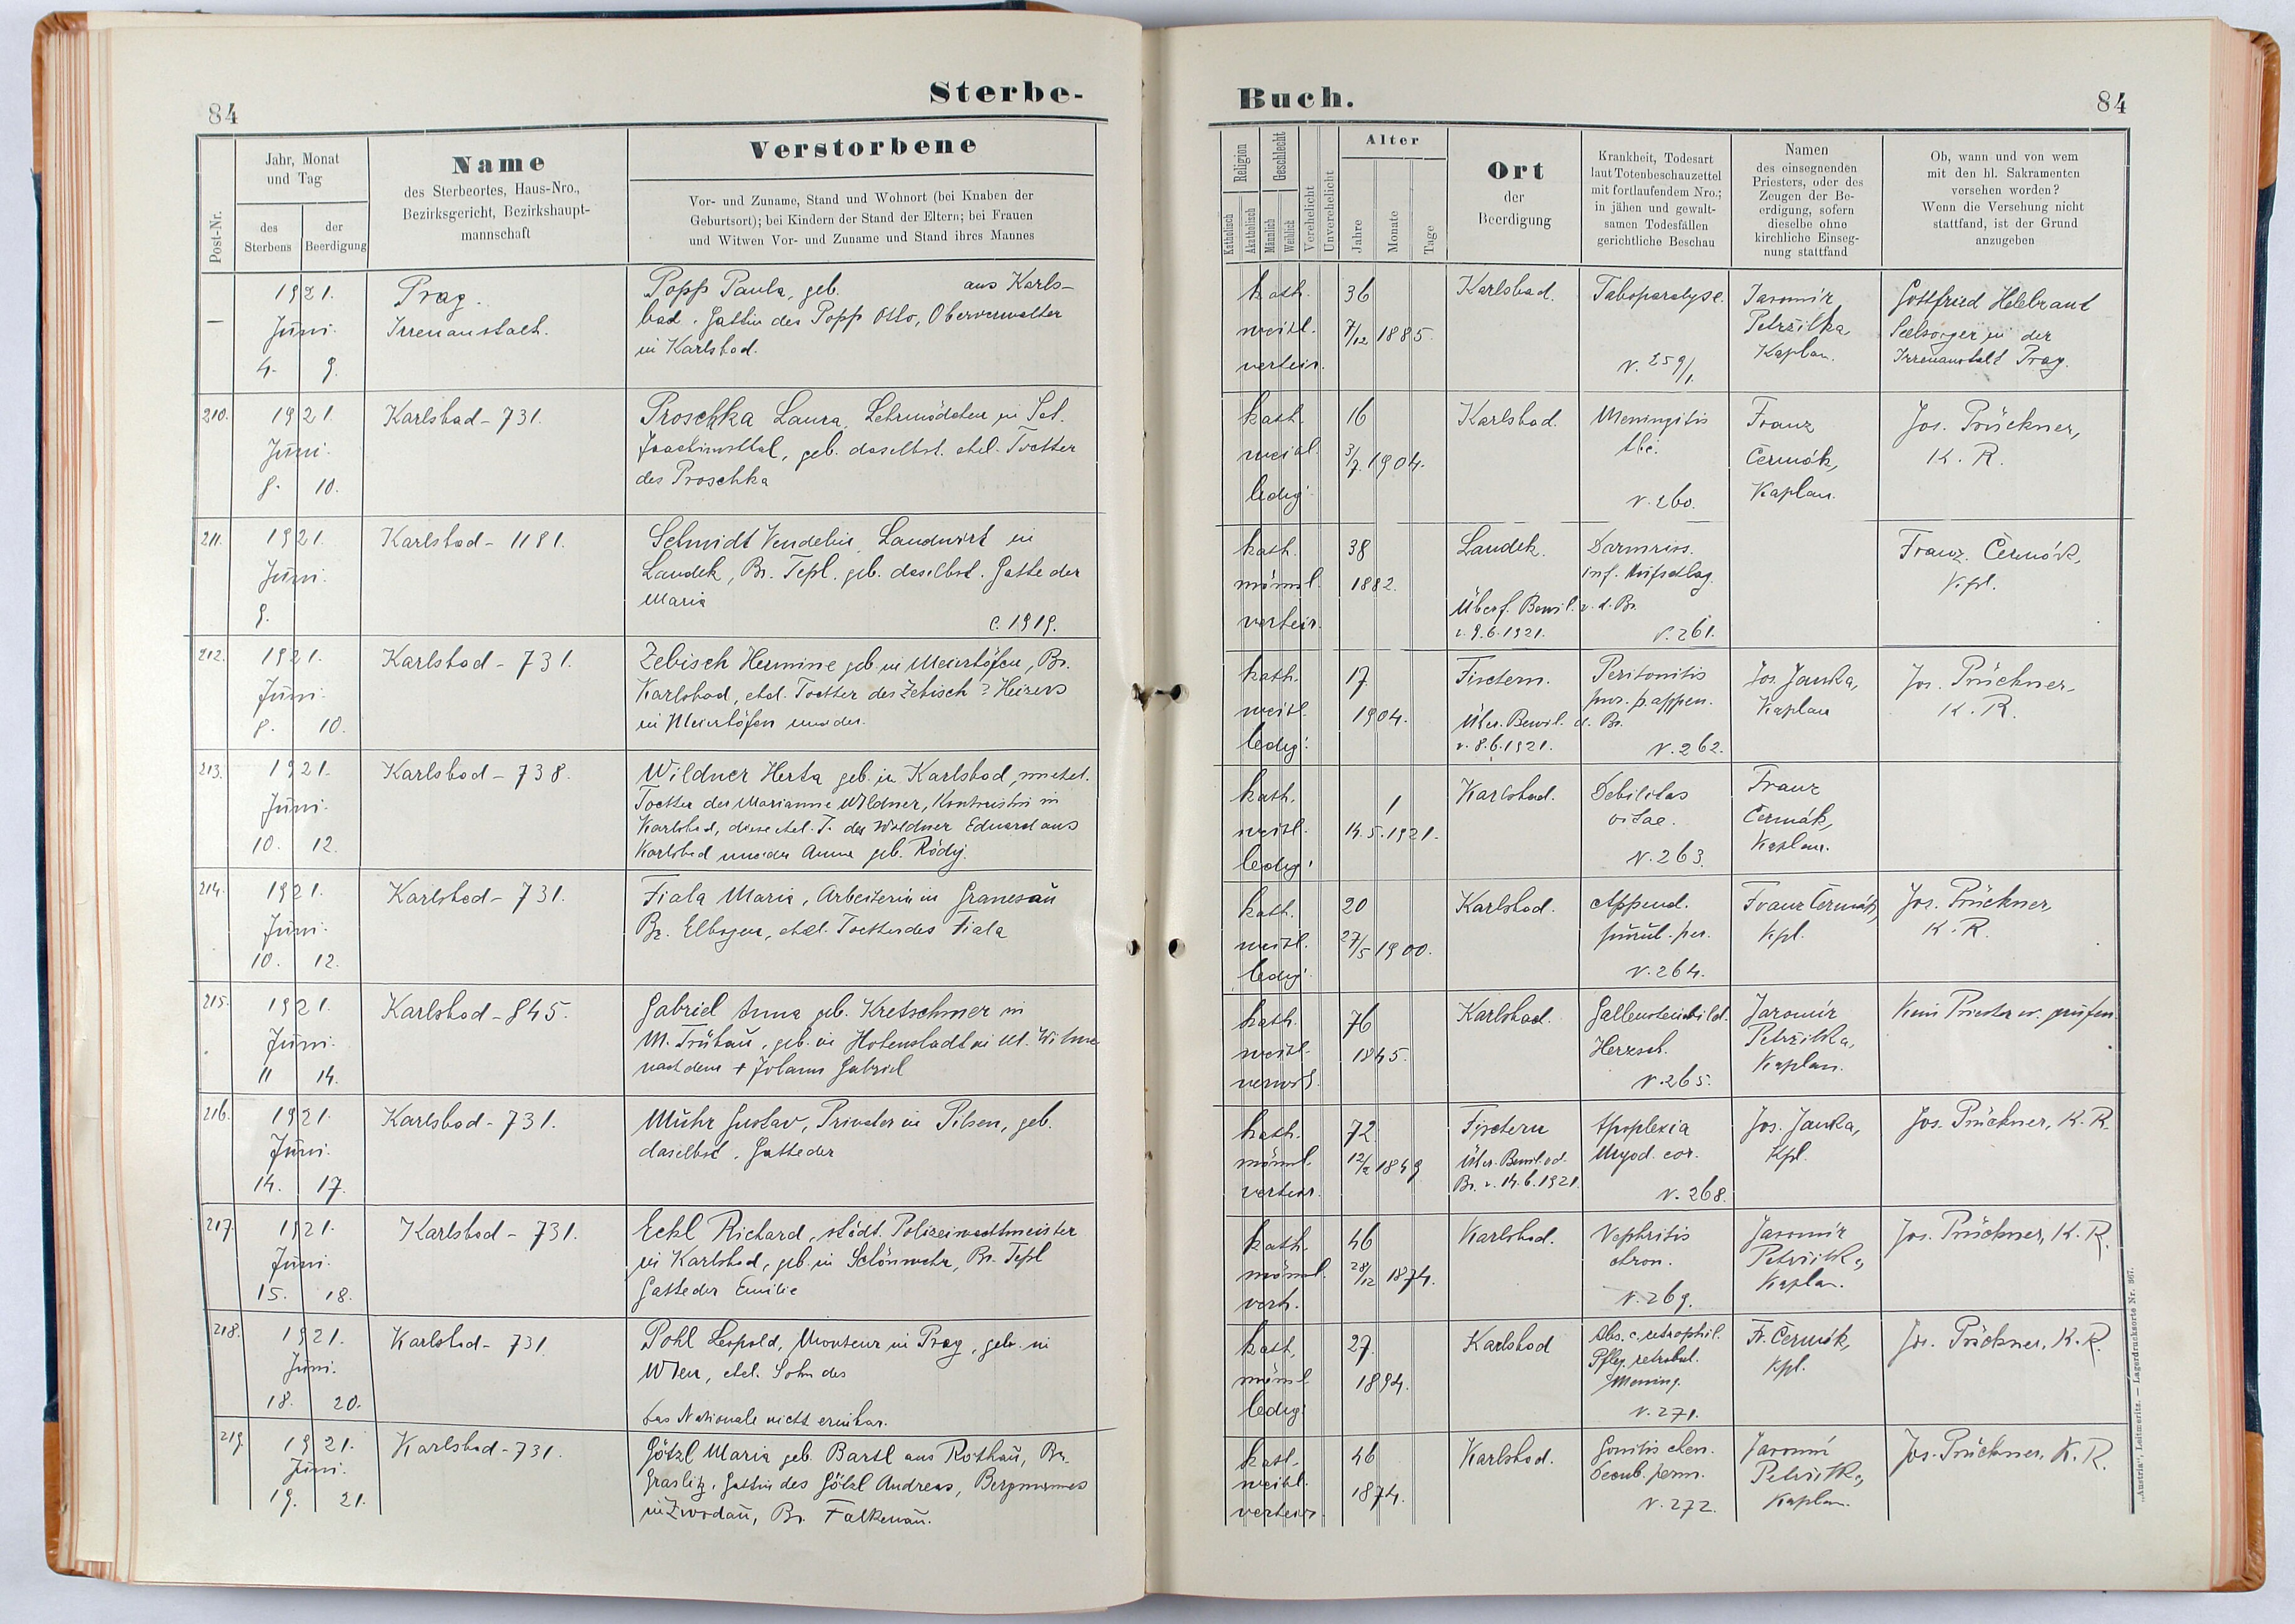 84
Sterbe-
Post-Nr.
Jahr, Monat
und Tag
des
Sterbens
der
Beerdigung
Name
des Sterbeortes, Haus-Nro.,
Bezirksgericht, Bezirkshaupt-
mannschaft
Verstorbene
Vor- und Zuname, Stand und Wohnort (bei Knaben der
Geburtsort); bei Kindern der Stand der Eltern; bei Frauen
und Witwen Vor- und Zuname und Stand ihres Mannes
—
1921.
Juni.
4. 9.
Prag.
Irrenanstalt.
Popp Paula, geb. aus Karls-
bad. Gattin des Popp Otto, Oberverwalter
in Karlsbad.
210.
1921.
Juni.
8. 10.
Karlsbad - 731.
Proschka Laura, Lehrmädchen in Set.
Joachimsthal, geb. daselbst. ehel. Tochter
des Proschka
211.
1921.
Juni.
9.
Karlsbad - 1181.
Schmidt Vendelin, Landwirt in
Landek, Br. Tepl. geb. daselbst. Gatte der
Maria
c. 1919.
212.
1921.
Juni.
8. 10.
Karlsbad - 731.
Zebisch Hermine geb in Meierhöfen, Br.
Karlsbad, ehel. Tochter des Zebisch ? Heizers
in Meierhöfen und der.
213.
1921.
Juni.
10. 12.
Karlsbad - 738.
Wildner Herta geb. in Karlsbad, unehel.
Tochter der Marianne Wildner, Kontoristin in
Karlsbad, diese ehel. T. des Wildner Eduard aus
Karlsbad und der Anna geb. Rödig.
214.
1921.
Juni.
10. 12.
Karlsbad - 731.
Fiala Maria, Arbeiterin in Granesau
Br. Elbogen, ehel. Tochter des Fiala
215.
1921.
Juni.
11 14.
Karlsbad - 845.
Gabriel Anna geb. Kretschmer in
M. Trübau, geb. in Hohenstadt in M. Witwe
nach dem + Johann Gabriel
216.
1921.
Juni.
14. 17.
Karlsbad - 731.
Muhr Gustav, Privater in Pilsen, geb.
daselbst. Gatte der
217.
1921.
Juni.
15. 18.
Karlsbad - 731.
Eckl Richard, städt. Polizeiwachtmeister
in Karlsbad, geb. in Schönwehr, Br. Tepl
Gatte der Emilie
218.
1921.
Juni.
18. 20.
Karlsbad - 731.
Pohl Leopold, Monteur in Prag, geb. in
Wien, ehel. Sohn des
Das Nationale nicht eruirbar.
219.
1921.
Juni.
19. 21.
Karlsbad - 731.
Götzl Maria geb. Bartl aus Rothau, Br.
Graslitz, Gattin des Götzl Andreas, Bergmannes
in Zwodau, Br. Falkenau.
Buch.
84
Religion
Katholisch
Akatholisch
Geschlecht
Männlich
Weiblich
Verehelicht
Unverehelicht
Alter
Jahre
Monate
Tage
Ort
der
Beerdigung
Krankheit, Todesart
laut Totenbeschauzettel
mit fortlaufendem Nro.;
in jähen und gewalt-
samen Todesfällen
gerichtliche Beschau
Namen
des einsegnenden
Priesters, oder des
Zeugen der Be-
erdigung, sofern
dieselbe ohne
kirchliche Einseg-
nung stattfand
Ob, wann und von wem
mit den hl. Sakramenten
versehen worden?
Wenn die Versehung nicht
stattfand, ist der Grund
anzugeben
kath.
weibl.
verheir.
36
7/12 1885.
Karlsbad.
Taboparalyse.
N. 259/1.
Jaromír
Petržilka
Kaplan.
Gottfried Helebrant
Seelsorger in der
Irrenanstalt Prag.
kath.
weibl.
ledig.
16
3/7. 1904.
Karlsbad.
Meningitis
tbc.
N. 260.
Franz
Čermák,
Kaplan.
Jos. Prückner,
K. R.
kath.
männl.
verheir.
38
1882.
Landek.
Überf. Bewil. v. d. Br.
v. 9.6.1921.
Darmriss.
inf. Hufschlag.
N. 261.
Franz Čermák,
Kpl.
kath.
weibl.
ledig.
17.
1904.
Fischern.
Über. Bewil. d. Br.
v. 8.6.1921.
Peritonitis
pur. p. appen.
N. 262.
Jos. Janka,
Kaplan
Jos. Prückner
K. R.
kath.
weibl.
ledig.
1
14.5.1921.
Karlsbad.
Debilitas
vitae.
N. 263.
Franz
Čermák,
Kaplan.
kath.
weibl.
ledig.
20
27/5 1900.
Karlsbad.
Append.
N. 264.
Franz Čermák,
Kpl.
Jos. Prückner
K. R.
kath.
weibl.
verwit.
76
1845.
Karlsbad.
Gallensteinbild.
Herzsch.
N. 265.
Jaromír
Petržilka,
Kaplan.
Kein Priester w. gerufen.
kath.
männl.
verheir.
72
12/2 1849
Fischern
Über. Bewil. v d.
Br. v. 14.6.1921.
Apoplexia
Myod. cor.
N. 268.
Jos. Janka,
Kpl.
Jos. Prückner, K. R.
kath.
männl.
verh.
46
28/12 1874.
Karlsbad.
Nephritis
chron.
N. 269.
Jaromír
Petržilka,
Kaplan.
Jos. Prückner, K. R.
kath.
männl
ledig.
27.
1894.
Karlsbad
Abs. c. retrophil.
Pfleg. retrobul.
Mening.
N. 271.
Fr. Čermák,
Kpl.
Jos. Prückner, K. R.
kath.
weibl.
verheir.
46
1874.
Karlsbad.
N. 272.
Jaromír
Petržilka,
Kaplan.
Jos. Prückner, K. R.
„Austria“, Leitmeritz. — Lagerdrucksorte Nr. 967.